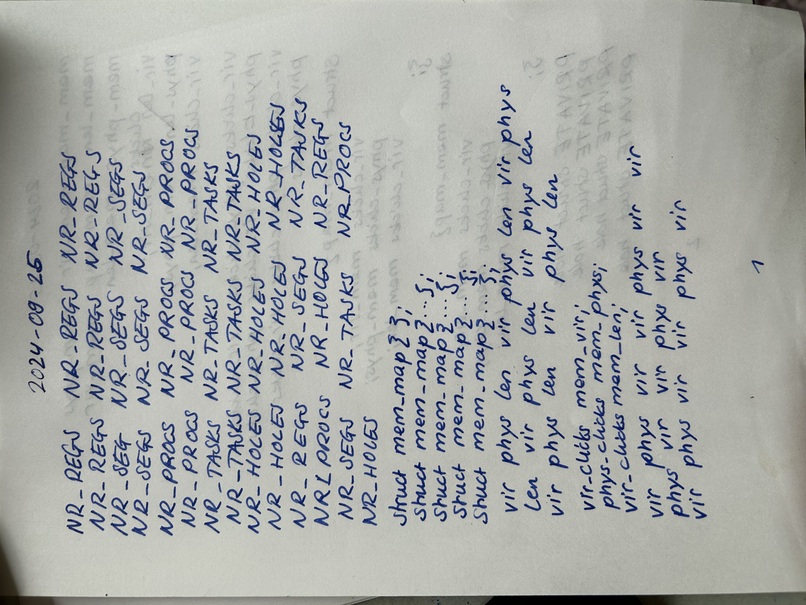 2024-09-25
NR_REGS NR_REGS NR_REGS
NR_REGS NR_REGS NR_REGS
NR_SEG NR_SEGS NR_SEGS
NR_SEGS NR_SEGS NR_SEGS
NR_PROCS NR_PROCS NR_PROCS
NR_PROCS NR_PROCS NR_PROCS
NR_TASKS NR_TASKS NR_TASKS
NR_TASKS NR_TASKS NR_TASKS
NR_HOLES NR_HOLES NR_HOLES
NR_HOLES NR_HOLES NR_HOLES
NR_REGS NR_SEGS NR_TASKS
NR_PROCS NR_HOLES NR_REGS
NR_SEGS NR_TASKS NR_PROCS
NR_HOLES
struct mem_map{ };
struct mem_map{...};
struct mem_map{...};
struct mem_map{... };
struct mem_map{... };
vir phys len vir phys len vir phys
len vir phys len vir phys len
vir phys len vir phys len
vir_clicks mem_vir;
phys_clicks mem_phys;
vir_clicks mem_len;
vir phys vir vir phys vir vir
phys vir vir phys vir
vir phys vir vir phys vir
1